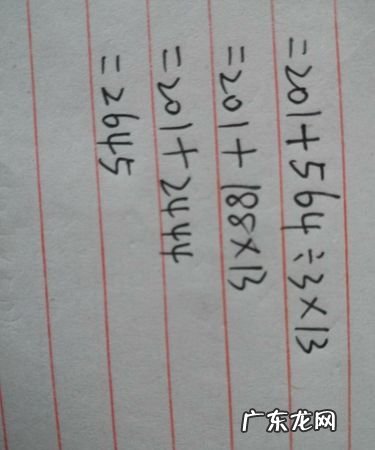 =201+564÷3×13
=201+188×13
=201+2444
=2645
广东龙网